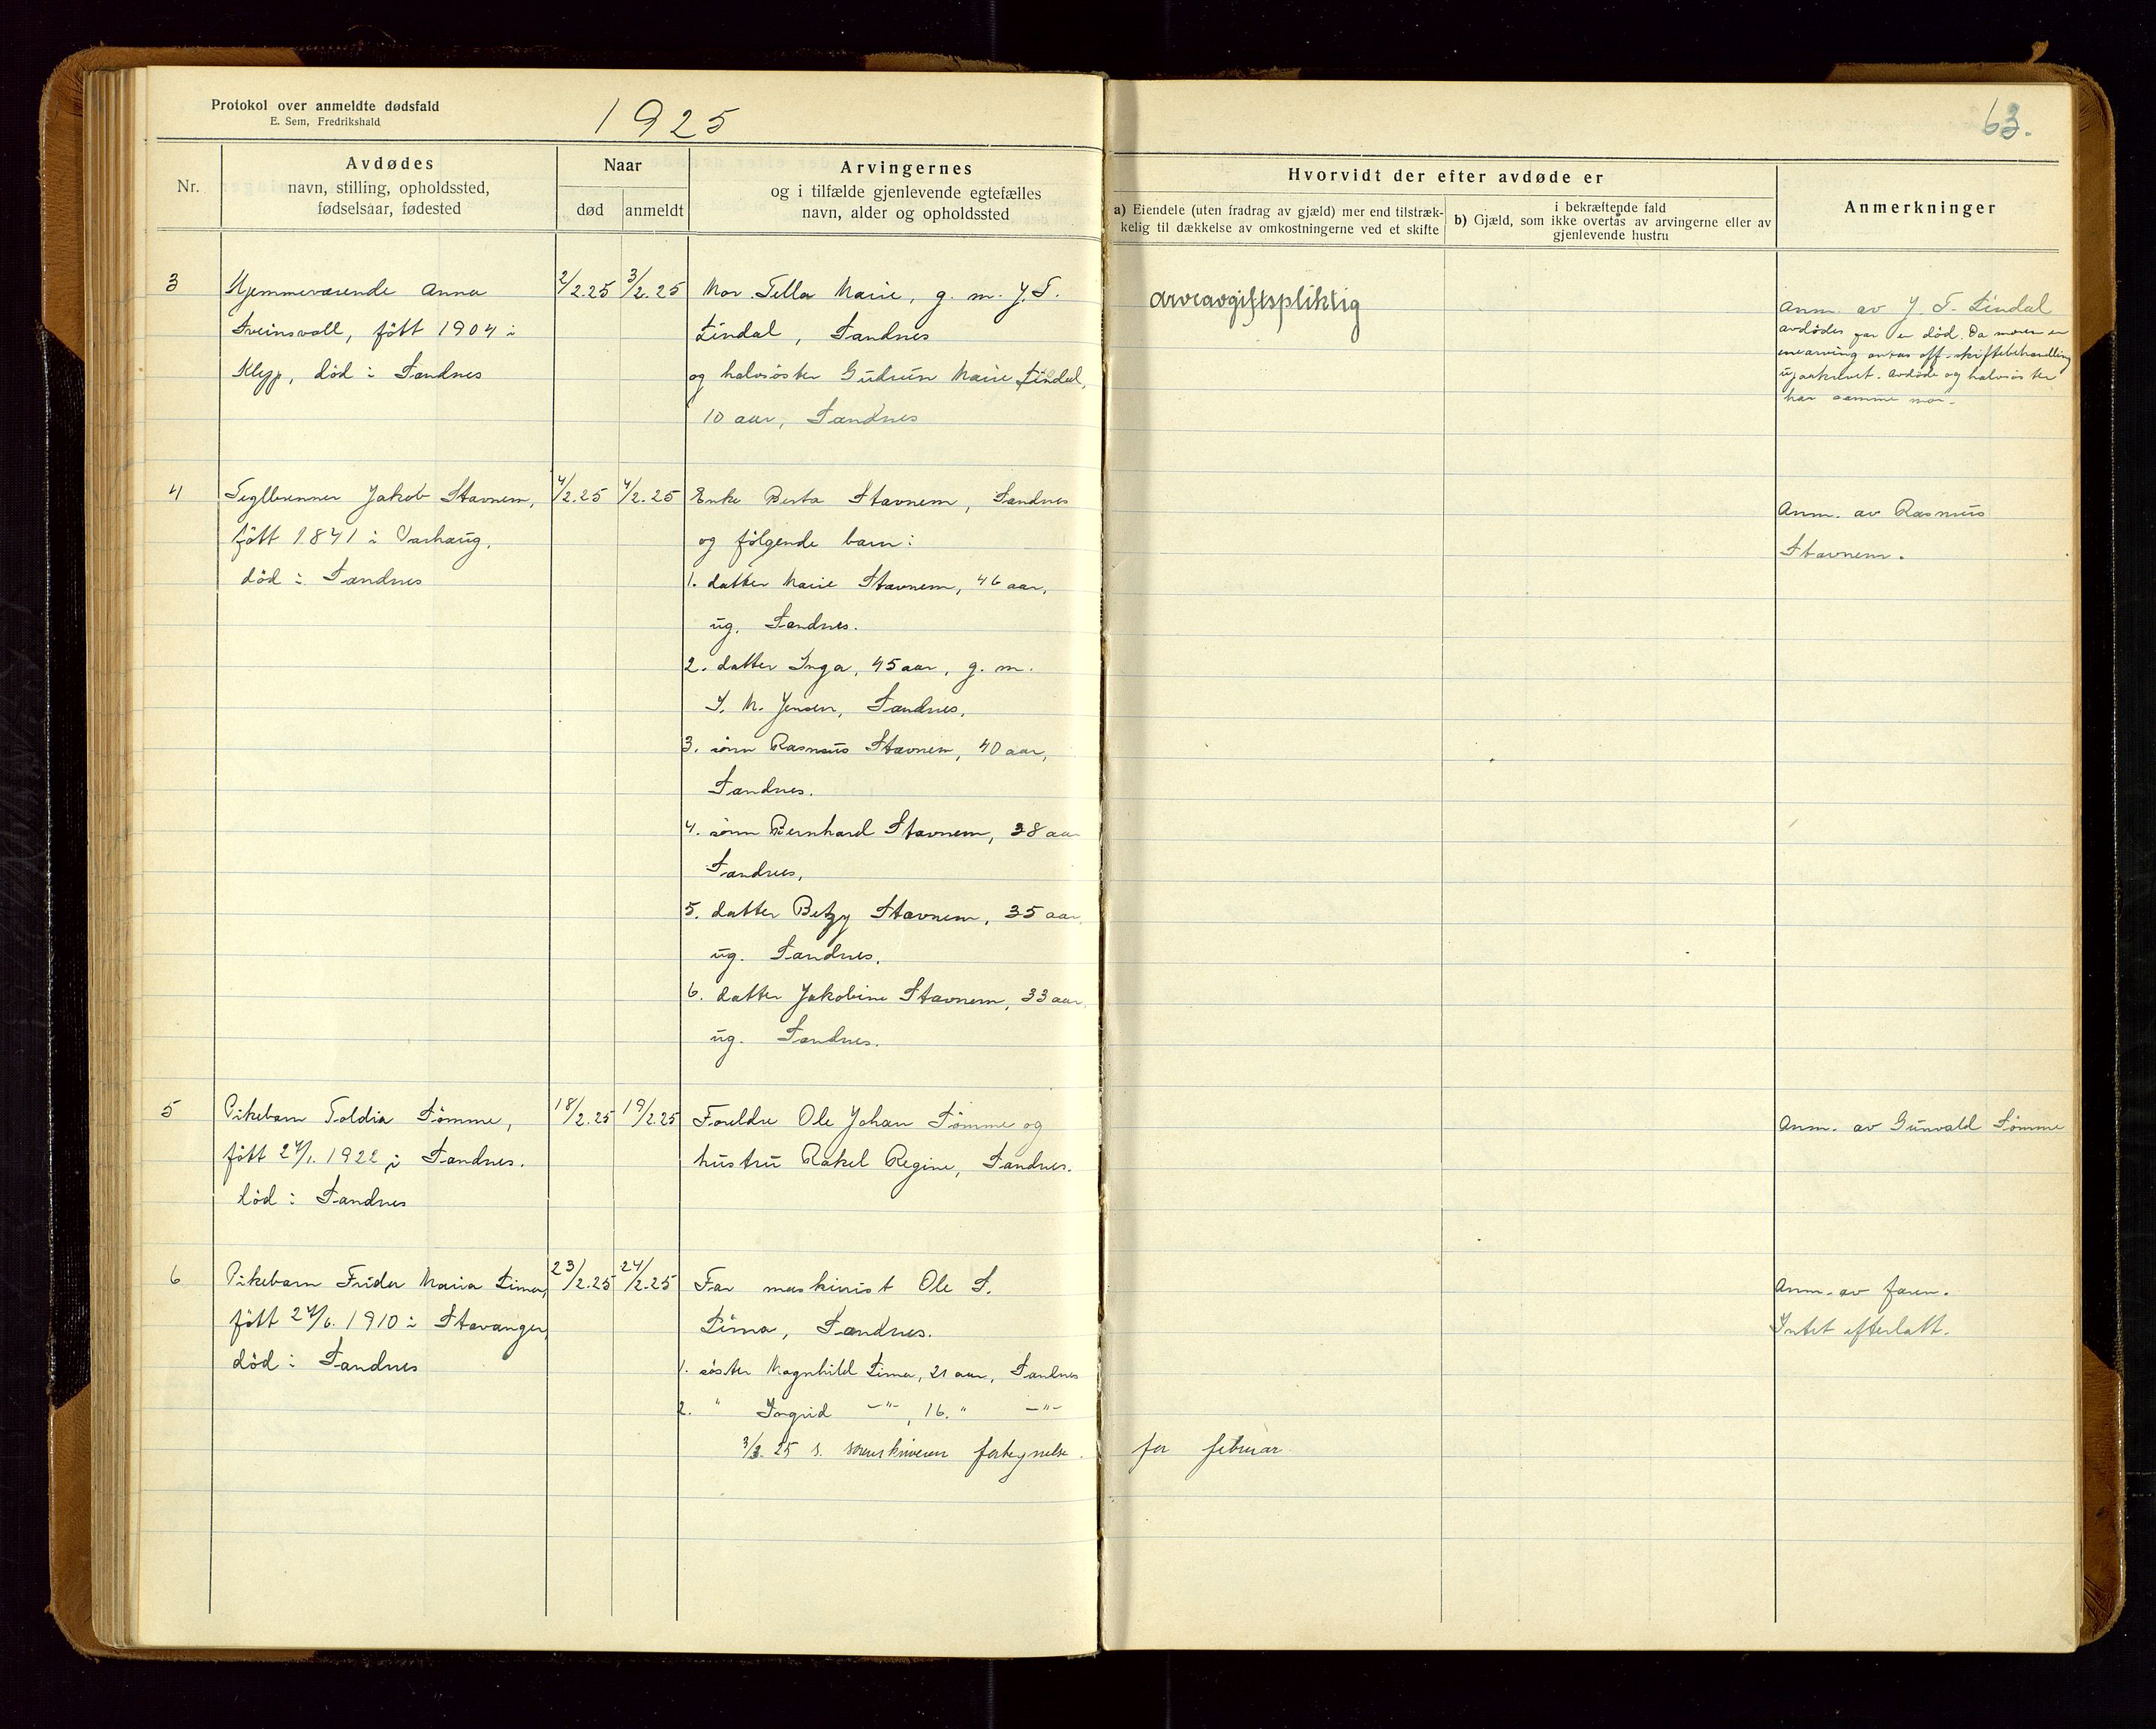 Protokol over anmeldte dødsfald
E. Sem, Fredrikshald
1925
63.
Nr.
Avdødes
navn, stilling, opholdssted,
fødselsaar, fødested
Naar
død
anmeldt
Arvingernes
og i tilfælde gjenlevende egtefælles
navn, alder og opholdssted
Hvorvidt der efter avdøde er
a) Eiendele (uten fradrag av gjæld) mer end tilstræk-
kelig til dækkelse av omkostningerne ved et skifte
i bekræftende fald
b) Gjæld, som ikke overtas av arvingerne eller av
gjenlevende hustru
Anmerkninger
3
Hjemmeværende Anna
Sveinsvoll, født 1904 i
Klepp, død i Sandnes
2/2.25
3/2.25
Mor Tella Marie, g. m. J. T.
Lindal, Sandnes
og halvsøster Gudrun Marie Lindal,
10 aar, Sandnes
arveavgiftspliktig
Anm. av J. T. Lindal
avdødes far er død. Da moren er
enearving antas off. skiftebehandling
upaakrevet. Avdøde og halvsøster
har samme mor.
4
Teglbrenner Jakob Stavnem,
født 1841 i Varhaug,
død i Sandnes
4/2.25
4/2.25
Enke Berta Stavnem, Sandnes
og følgende barn:
1. datter Marie Stavnem, 46 aar,
ug. Sandnes.
2. datter Inga, 45 aar, g. m.
J. M. Jensen, Sandnes,
3. sønn Rasmus Stavnem, 40 aar,
Sandnes.
4. sønn Bernhard Stavnem, 38 aar
Sandnes,
5. datter Betzy Stavnem, 35 aar,
ug. Sandnes,
6. datter Jakobine Stavnem, 33 aar,
ug. Sandnes.
Anm. av Rasmus
Stavnem.
5
Pikebarn Toldia Sømme,
født 24/1. 1922 i Sandnes.
død i Sandnes
18/2.25
19/2.25
Foreldre Ole Johan Sømme og
hustru Rakel Regine, Sandnes.
Anm. av Gunvald Sømme
6
Pikebarn Frida Maria Lima,
født 24/6. 1910 i Stavanger,
død i Sandnes
23/2.25
24/2.25
Far maskinist Ole S.
Lima, Sandnes.
1. søster Magnhild Lima, 21 aar, Sandnes
2. " Ingrid -"-, 16. " -"-
3/3. 25 s. sorenskriveren fortegnelse
for februar
Anm. av faren.
Intet efterlatt.